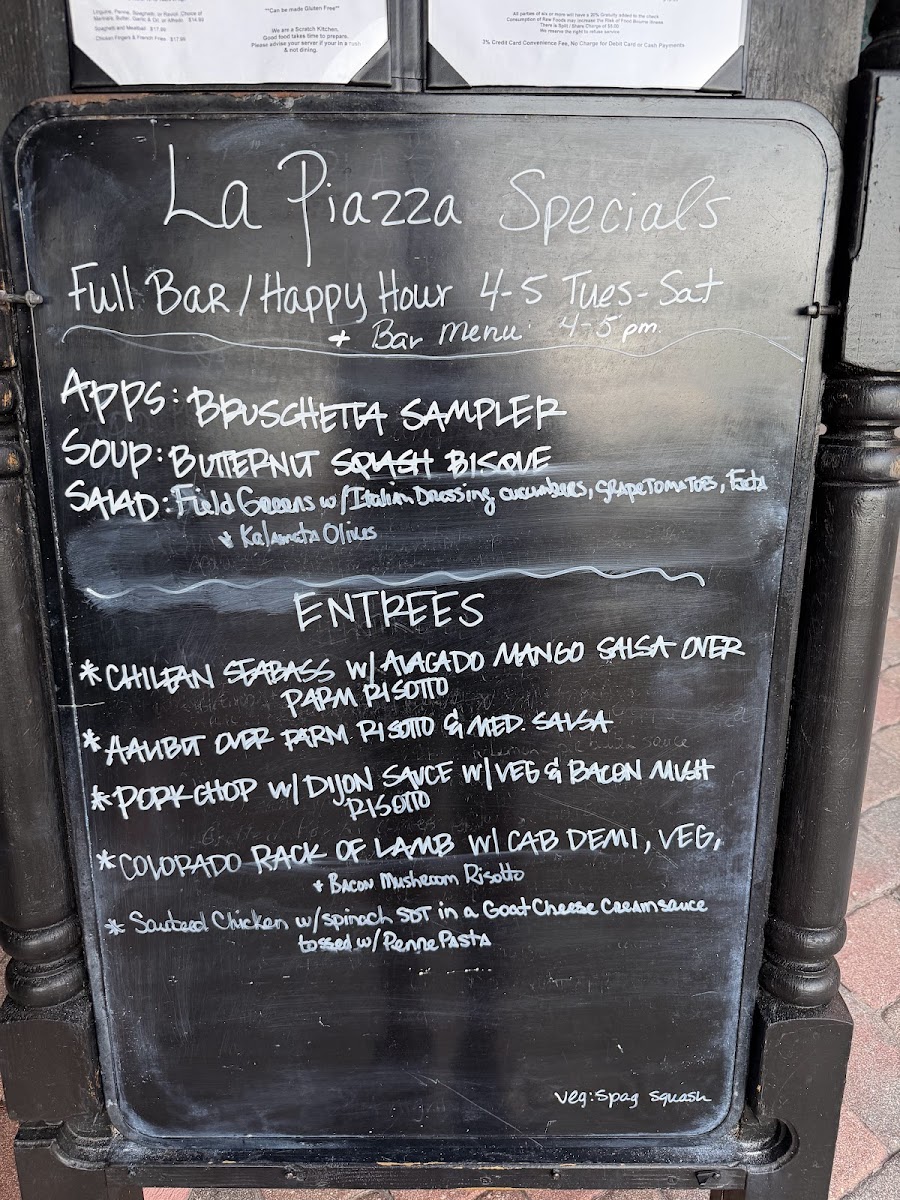 Linguine, Penne, Spaghetti, or Ravioli, Choice of
Marinara, Butter, Garlic & Oil, or Alfredo $14.99
Spaghetti and Meatball $17.99
Chicken Fingers & French Fries $17.99
**Can be made Gluten Free**
We are a Scratch Kitchen,
Good food takes time to prepare.
Please advise your server if your in a rush
& not dining.
All parties of six or more will have a 20% Gratuity added to the check
Consumption of Raw Foods may increase the Risk of Food Bourne Illness
There is Split / Share Charge of $5.00
We reserve the right to refuse service
3% Credit Card Convenience Fee, No Charge for Debit Card or Cash Payments
La Piazza Specials
Full Bar / Happy Hour 4-5 Tues-Sat
+ Bar Menu 4-5 pm.
APPS: BRUSCHETTA SAMPLER
SOUP: BUTTERNUT SQUASH BISQUE
SALAD: Field Greens w/ Italian Dressing, cucumbers, GRAPE TOMATOES, Feta
+ Kalamata Olives
ENTREES
* CHILEAN SEABASS W/ AVACADO MANGO SALSA OVER
PARM RISOTTO
* HALIBUT OVER PARM RISOTTO & MED. SALSA
* PORK CHOP W/ DIJON SAUCE W/ VEG & BACON MUSH
RISOTTO
* COLORADO RACK OF LAMB W/ CAB DEMI, VEG,
+ Bacon Mushroom Risotto
* Sauteed Chicken w/ spinach SDT in a Goat Cheese Cream sauce
tossed w/ Penne PASTA
veg: spag squash